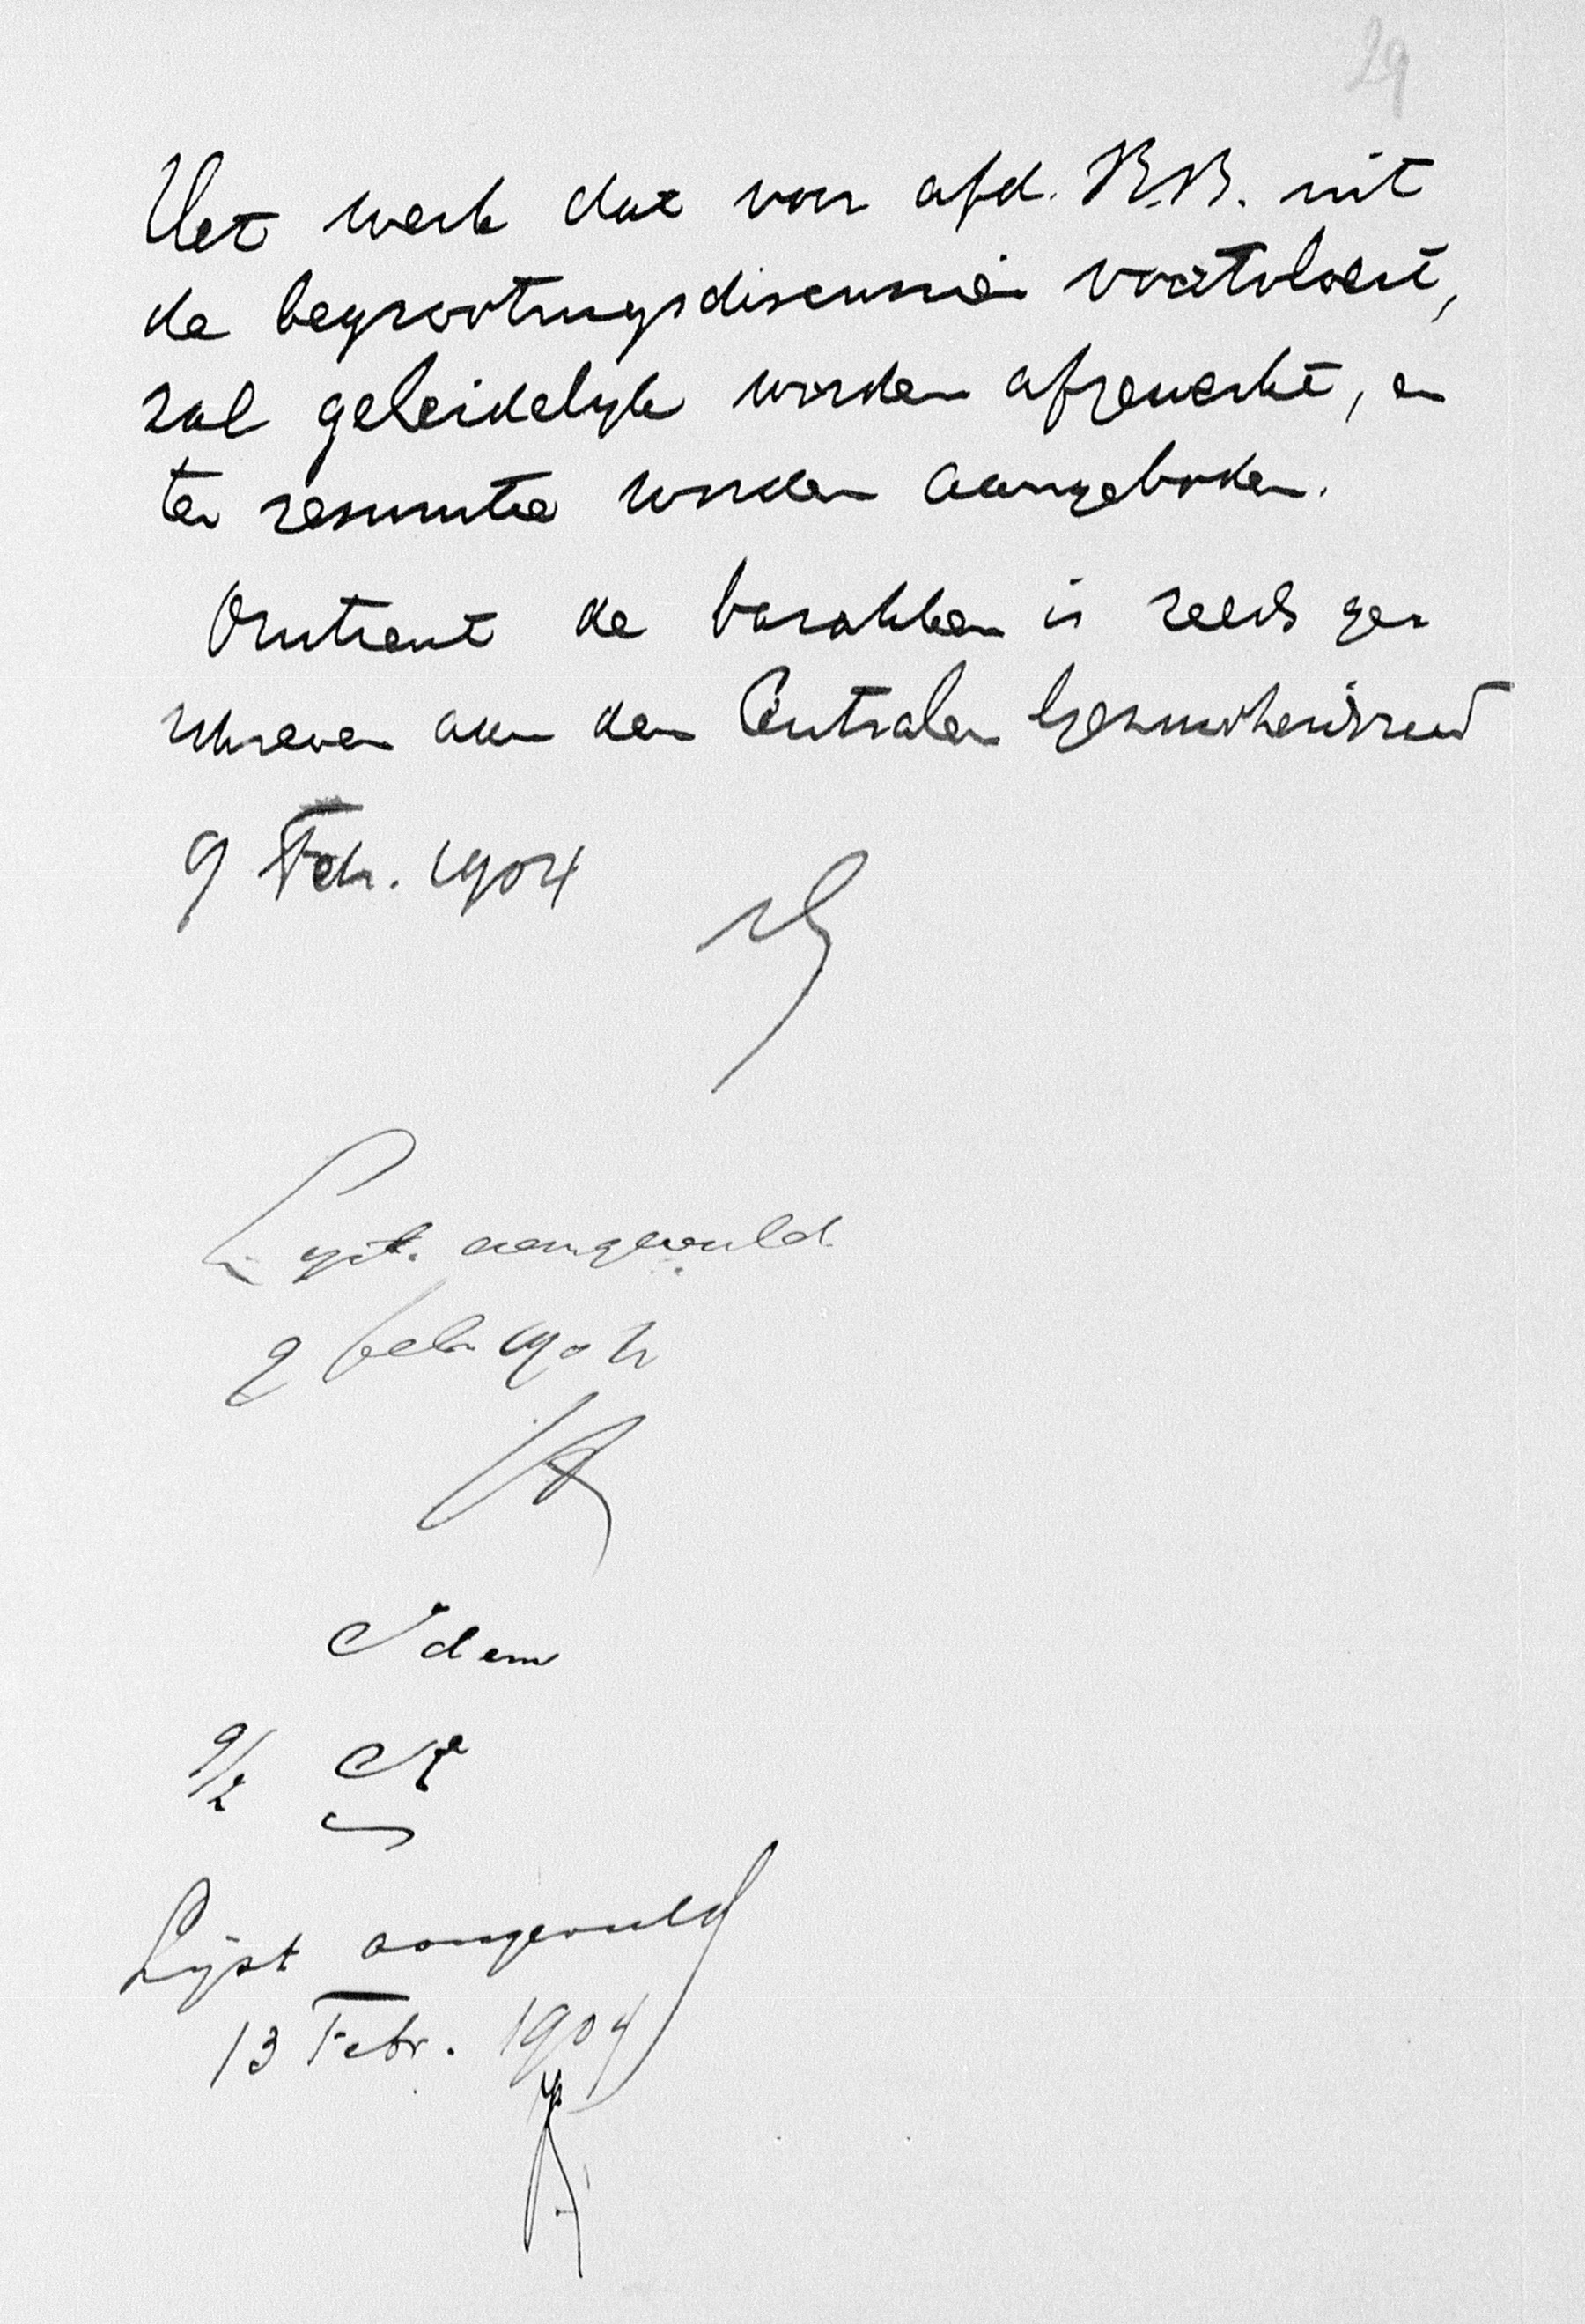 29
Het werk dat voor afd. B.B. uit
de begrootingsdiscussiën voortvloeit,
zal geleidelijk worden afgewerkt, en
ter resumtie worden aangeboden.
Omtrent de barakken is reeds ge
schreven aan den Centralen Gezondheidsraad
9 Febr. 1904
Lijst aangevuld
9 febr 1904
Idem
9/2
Lijst aangevuld
13 Febr. 1904